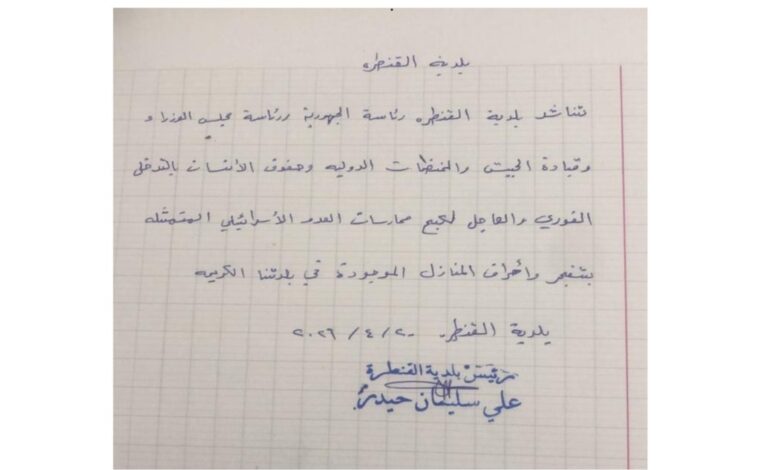 بلدية القنطره
تناشد بلدية القنطره رئاسة الجمهورية ورئاسة مجلس الوزراء
وقيادة الجيش والمنظمات الدوليه وحقوق الأنسان بالتدخل
الفوري والعاجل لكبح ممارسات العدو الأسرائيلي المتمثله
بتفجير وأحراق المنازل الموجودة في بلدتنا الكريمه
بلدية القنطره ٢٠٢٦/٤/٢٠
رئيس بلدية القنطرة
علي سليمان حيدر